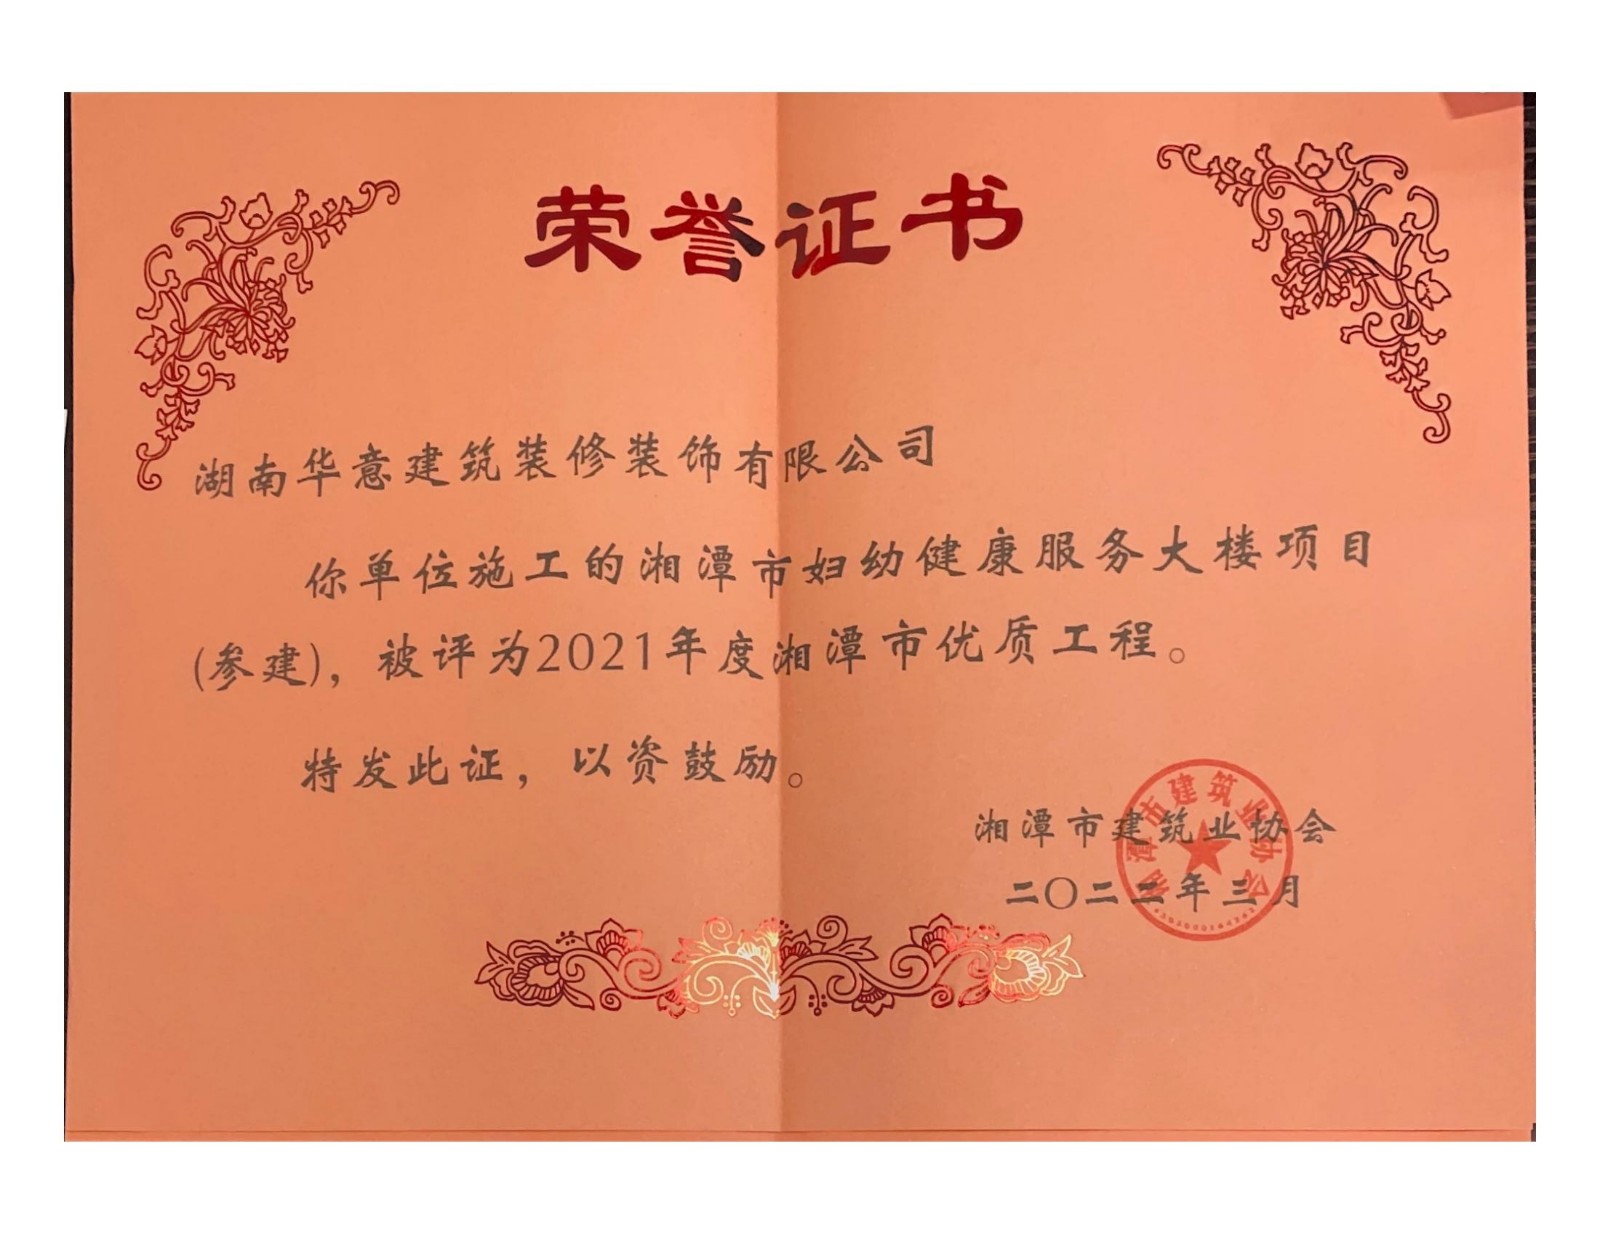 荣誉证书
湖南华意建筑装修装饰有限公司
你单位施工的湘潭市妇幼健康服务大楼项目
(参建)，被评为2021年度湘潭市优质工程。
特发此证，以资鼓励。
湘潭市建筑业协会
二〇二二年三月
湘潭市建筑业协会